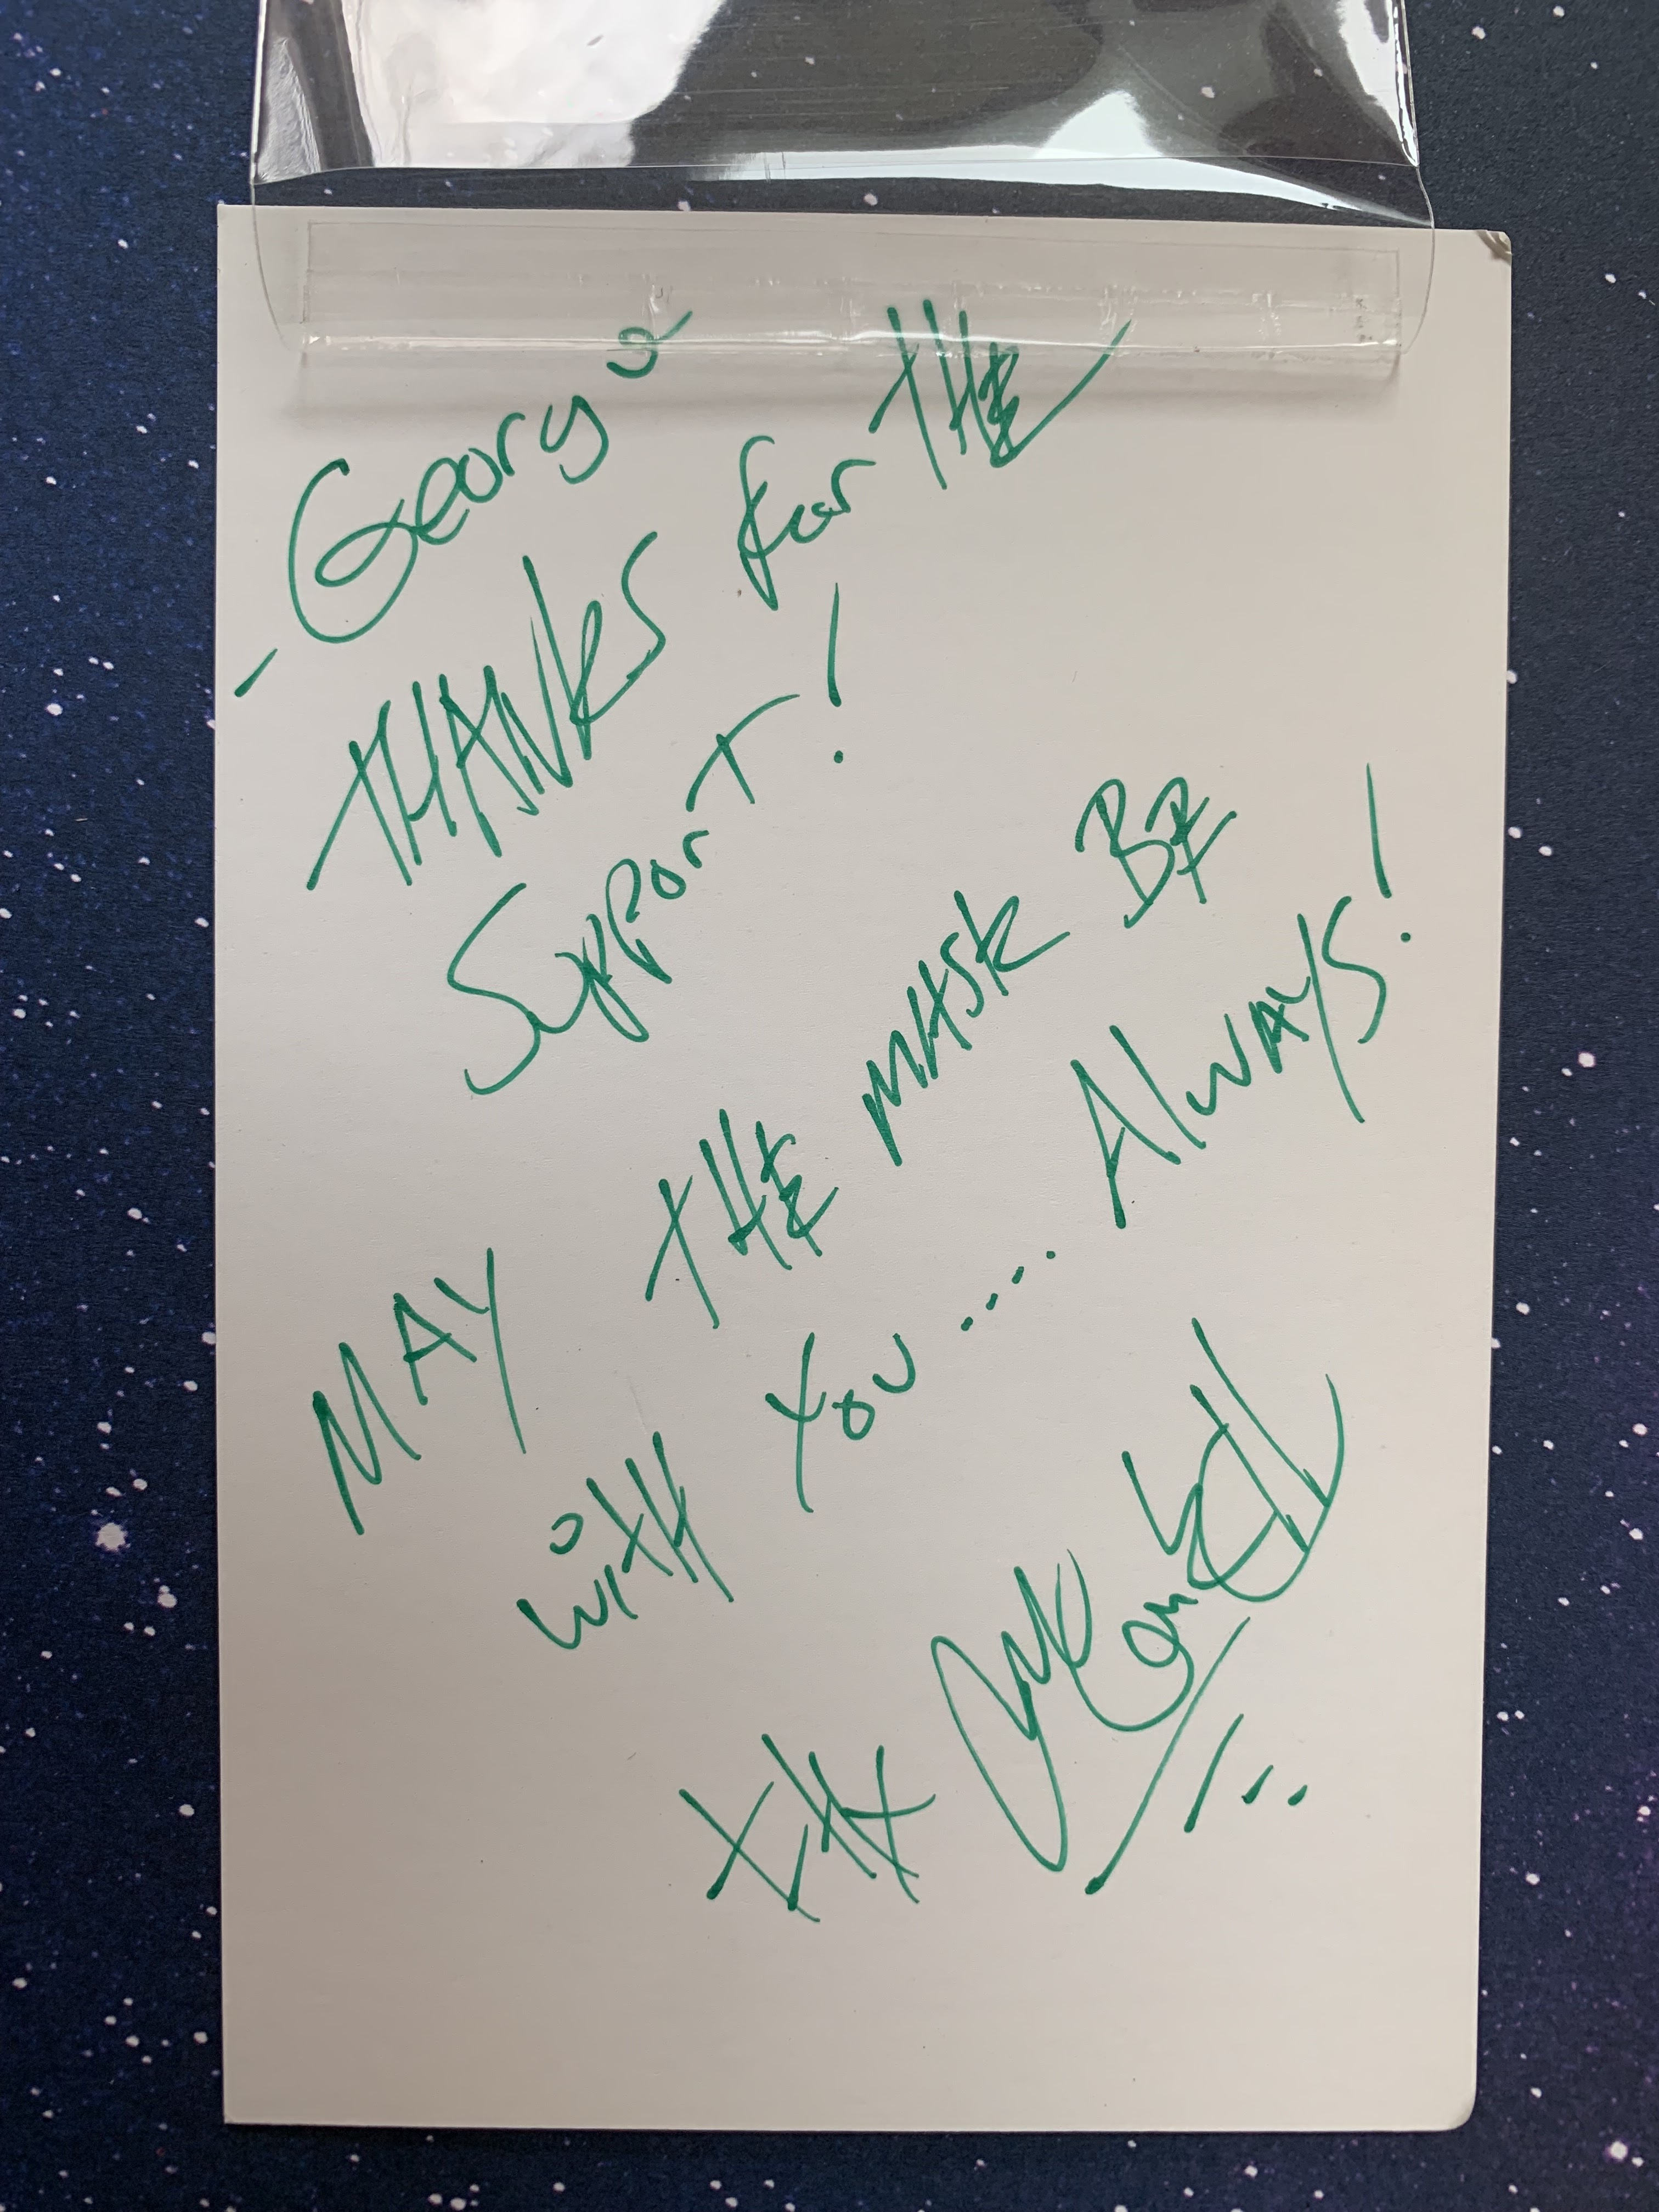 - George
THANKS for THE
Support!
MAY THE MASK BE
with You.... Always!